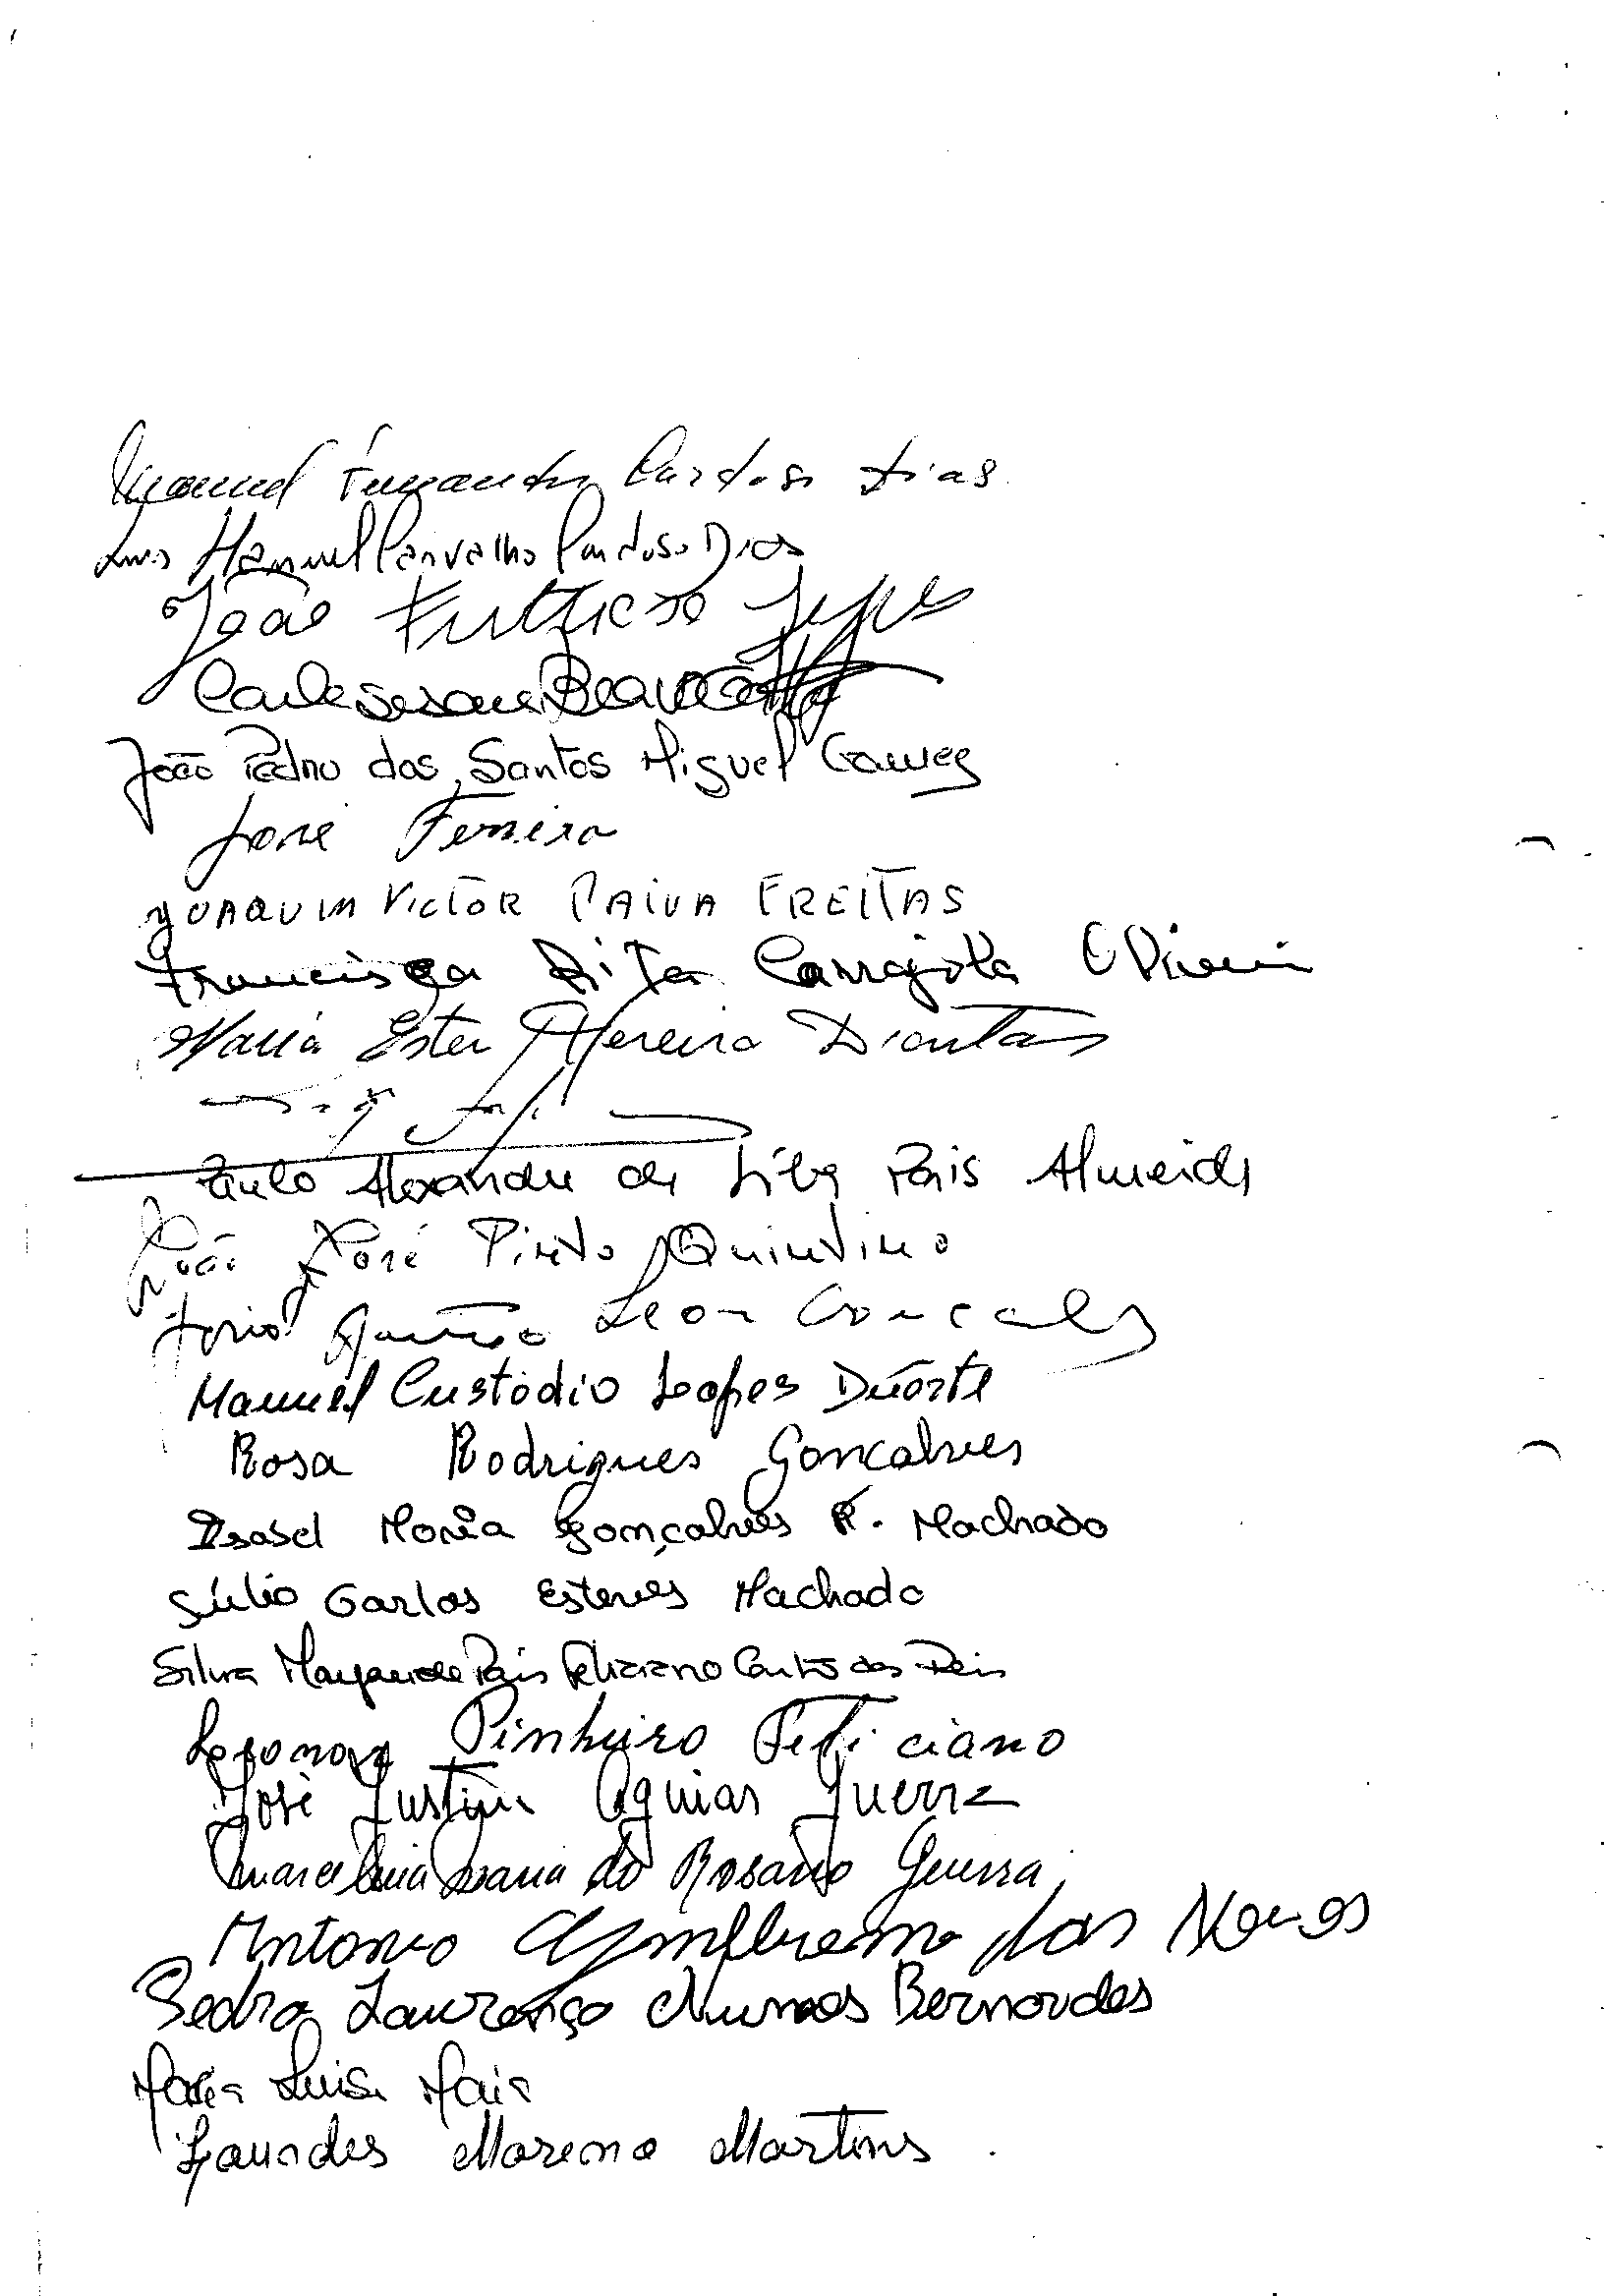 Manuel Fernando Cardoso Dias
Luis Manuel Carvalho Cardoso Dias
João Frutuoso Lopes
Carla Susana
João Pedro dos Santos Miguel Gomes
José Ferreira
JOAQUIM VICTOR PAIVA FREITAS
Francisca Rita Carrajola Oliveira
Maria Ester Pereira Dantas
Paulo Alexandre da Silva Pais Almeida
João José Pinto Quintino
Leon Goncalves
Manuel Custódio Lopes Duarte
Rosa Rodrigues Goncalves
Isabel Maria Gonçalves F. Machado
Júlio Carlos Esteves Machado
Silvia Margarida Pais Feliciano Couto dos Reis
Leonor Pinheiro Feliciano
José Justino Aguiar Guerra
Maria do Rosario Guerra
Antonio das Neves
Pedro Lourenço Nunes Bernardes
Maria Luisa Maia
Lourdes Moreno Martins